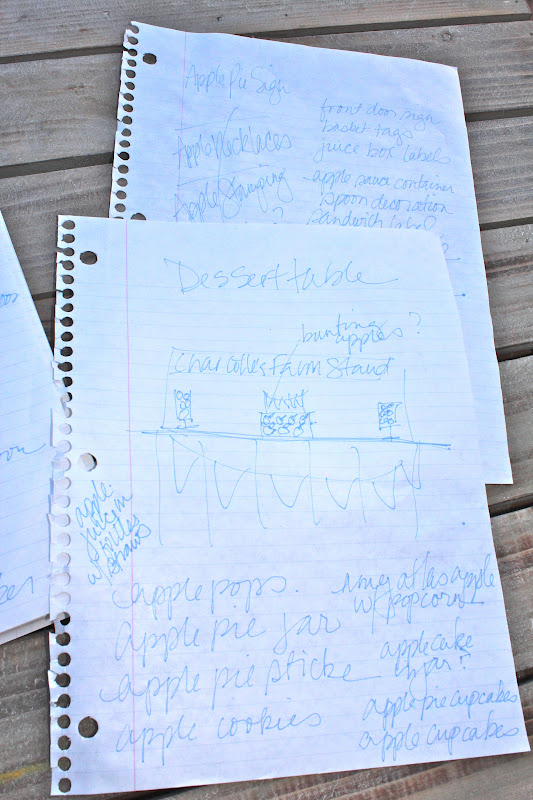 Apple Pie Sign
Apple Necklaces
Apple Stamping
?
front door sign
basket tags
juice box labels
apple sauce container
spoon decoration
sandwich label
?
Dessert table
bunting
apples?
Charlotte's Farm Stand
apple
juice in
bottles
w/ straws
apple pops
apple pie jar
apple pie sticks
apple cookies
apple
w/ popcorn
apple cake
?
apple pie cupcakes
apple cupcakes